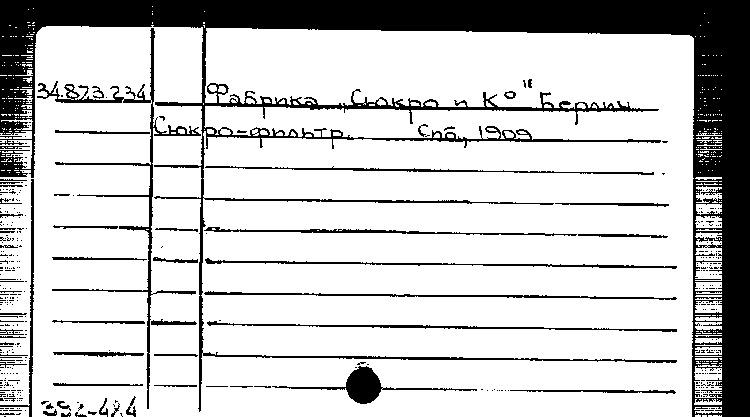 34.873.234 Фабрика „Сюкро и К°" Берлин
Сюкро-фильтр. Спб., 1909
392-484